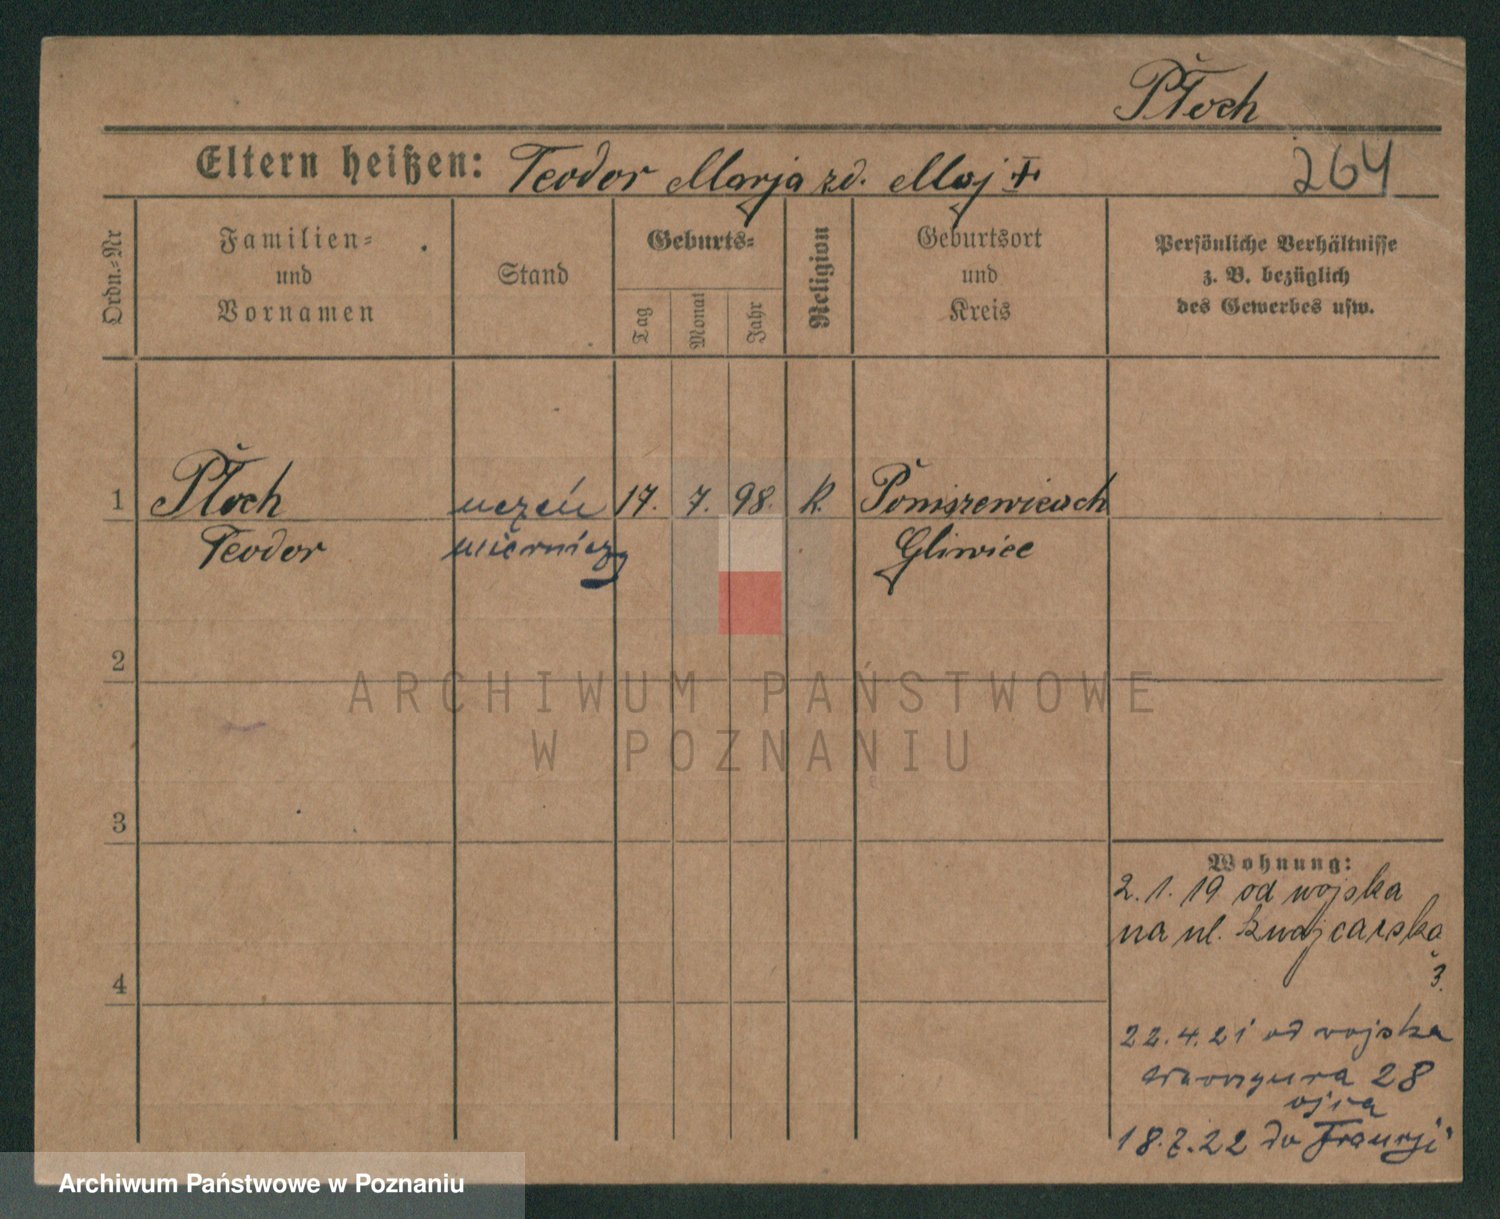 Płoch
Eltern heißen: Teodor Marja zd. Maj +
264
Ordn.-Nr
Familien-
und
Vornamen
Stand
Geburts-
Tag
Monat
Jahr
Religion
Geburtsort
und
Kreis
Persönliche Verhältnisse
z. B. bezüglich
des Gewerbes usw.
1 Płoch uczeń 17. 7. 98. k. Poniszewicach
Teodor mierniczy Gliwice
2
ARCHIWUM PAŃSTWOWE
W POZNANIU
3
Wohnung:
2.1.19 od wojska
na ul. Szwajcarska
3.
4
22.4.21 od wojska
28
ojca
18.7.22 do Francji
Archiwum Państwowe w Poznaniu